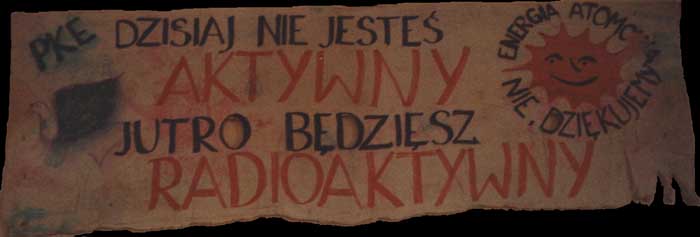 PKE
DZISIAJ NIE JESTEŚ
AKTYWNY
JUTRO BĘDZIĘSZ
RADIOAKTYWNY
ENERGIA ATOMOWA
NIE, DZIĘKUJEMY